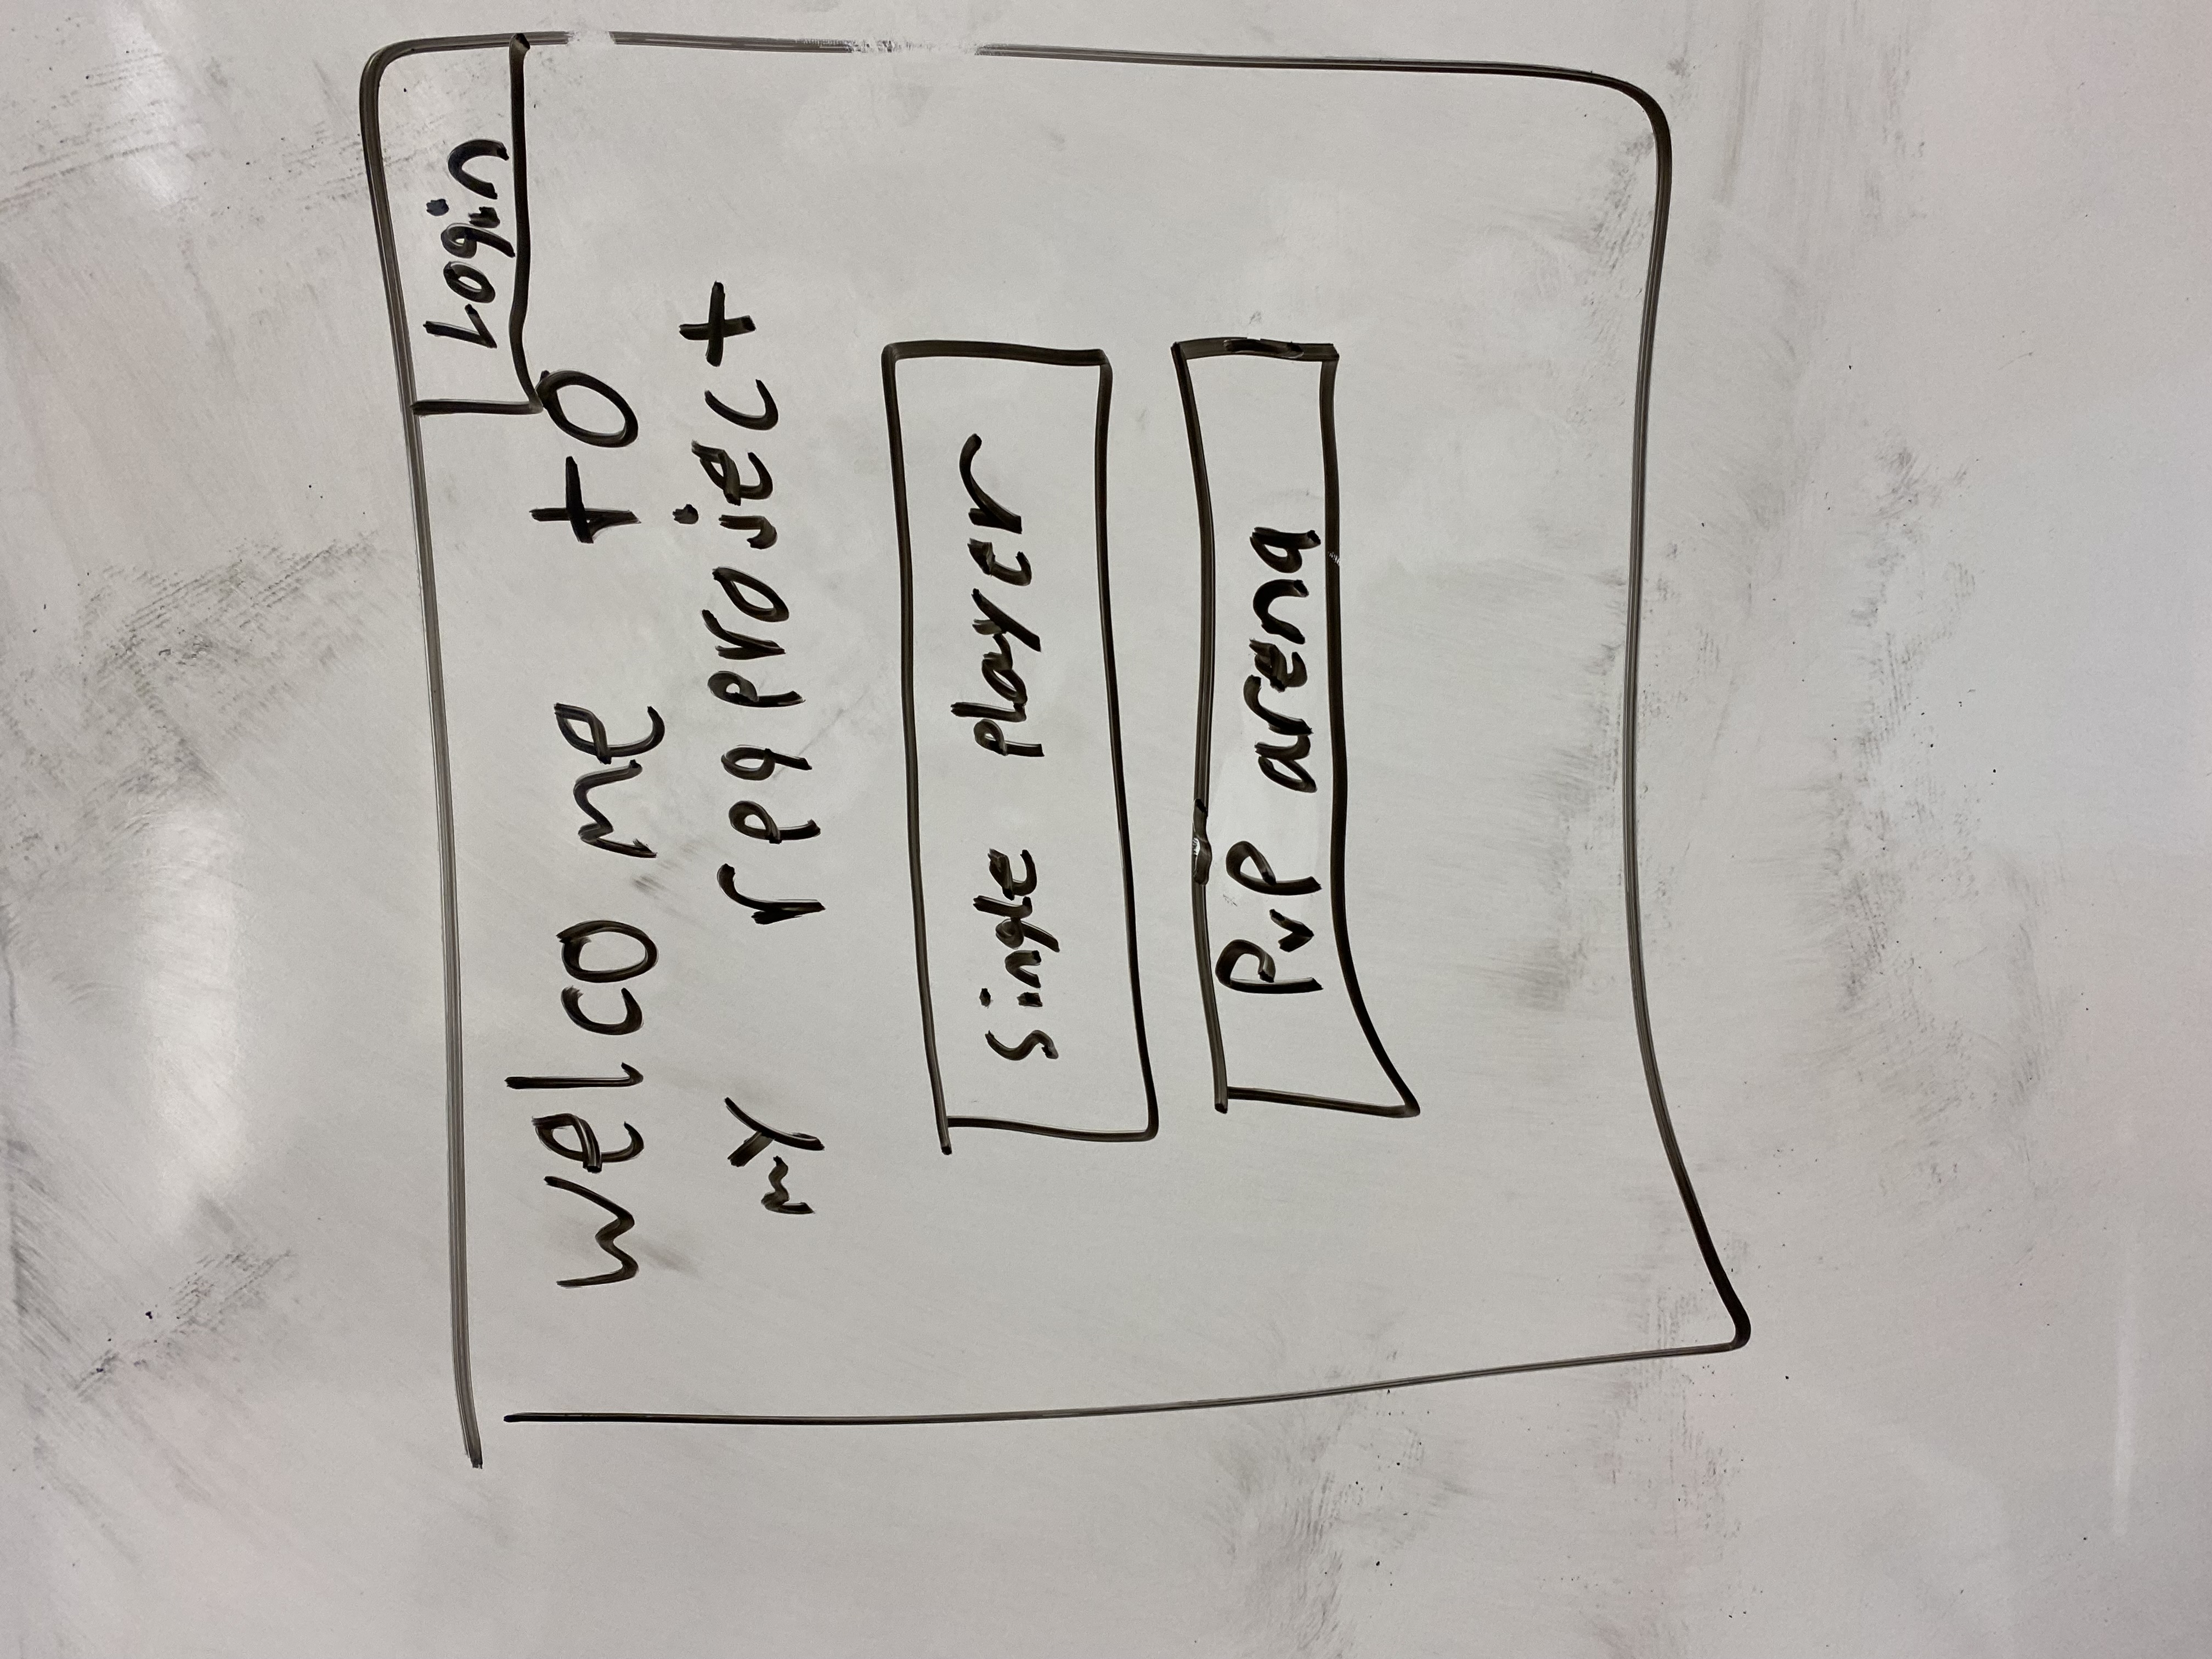 Login
Welcome to
my rpgproject
Single player
PvP arena